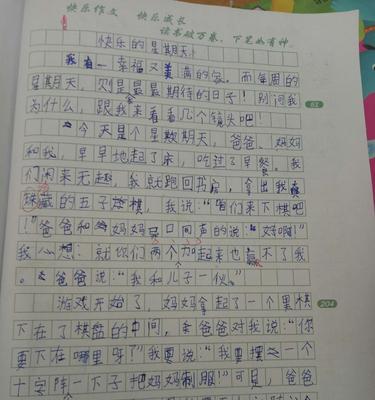 快乐作文 快乐成长
读书破万卷，下笔如有神
快乐的星期天
我有一幸福又美满的家。而每周的
星期天，则是最最期待的日子！别问我
为什么，跟我来看看几个镜头吧！
63
今天是个星期天，爸爸、妈妈
和我，早早地起了床，吃过了早餐。我
们闲来无趣，我就跑回书房，拿出我
珠藏的五子棋，我说："咱们来下棋吧
！"爸爸和妈妈异口同声的说："好啊！"
我心想：就你们两个加起来也赢不了我
。爸爸说："我和儿子一伙。"
游戏开始了，妈妈拿起了一个黑棋
204
下在了棋盘的中间，爸爸对我说："你
要下在哪里呀？"我说："我要摆一个
十字阵一下子把妈妈制服！"可是，爸爸